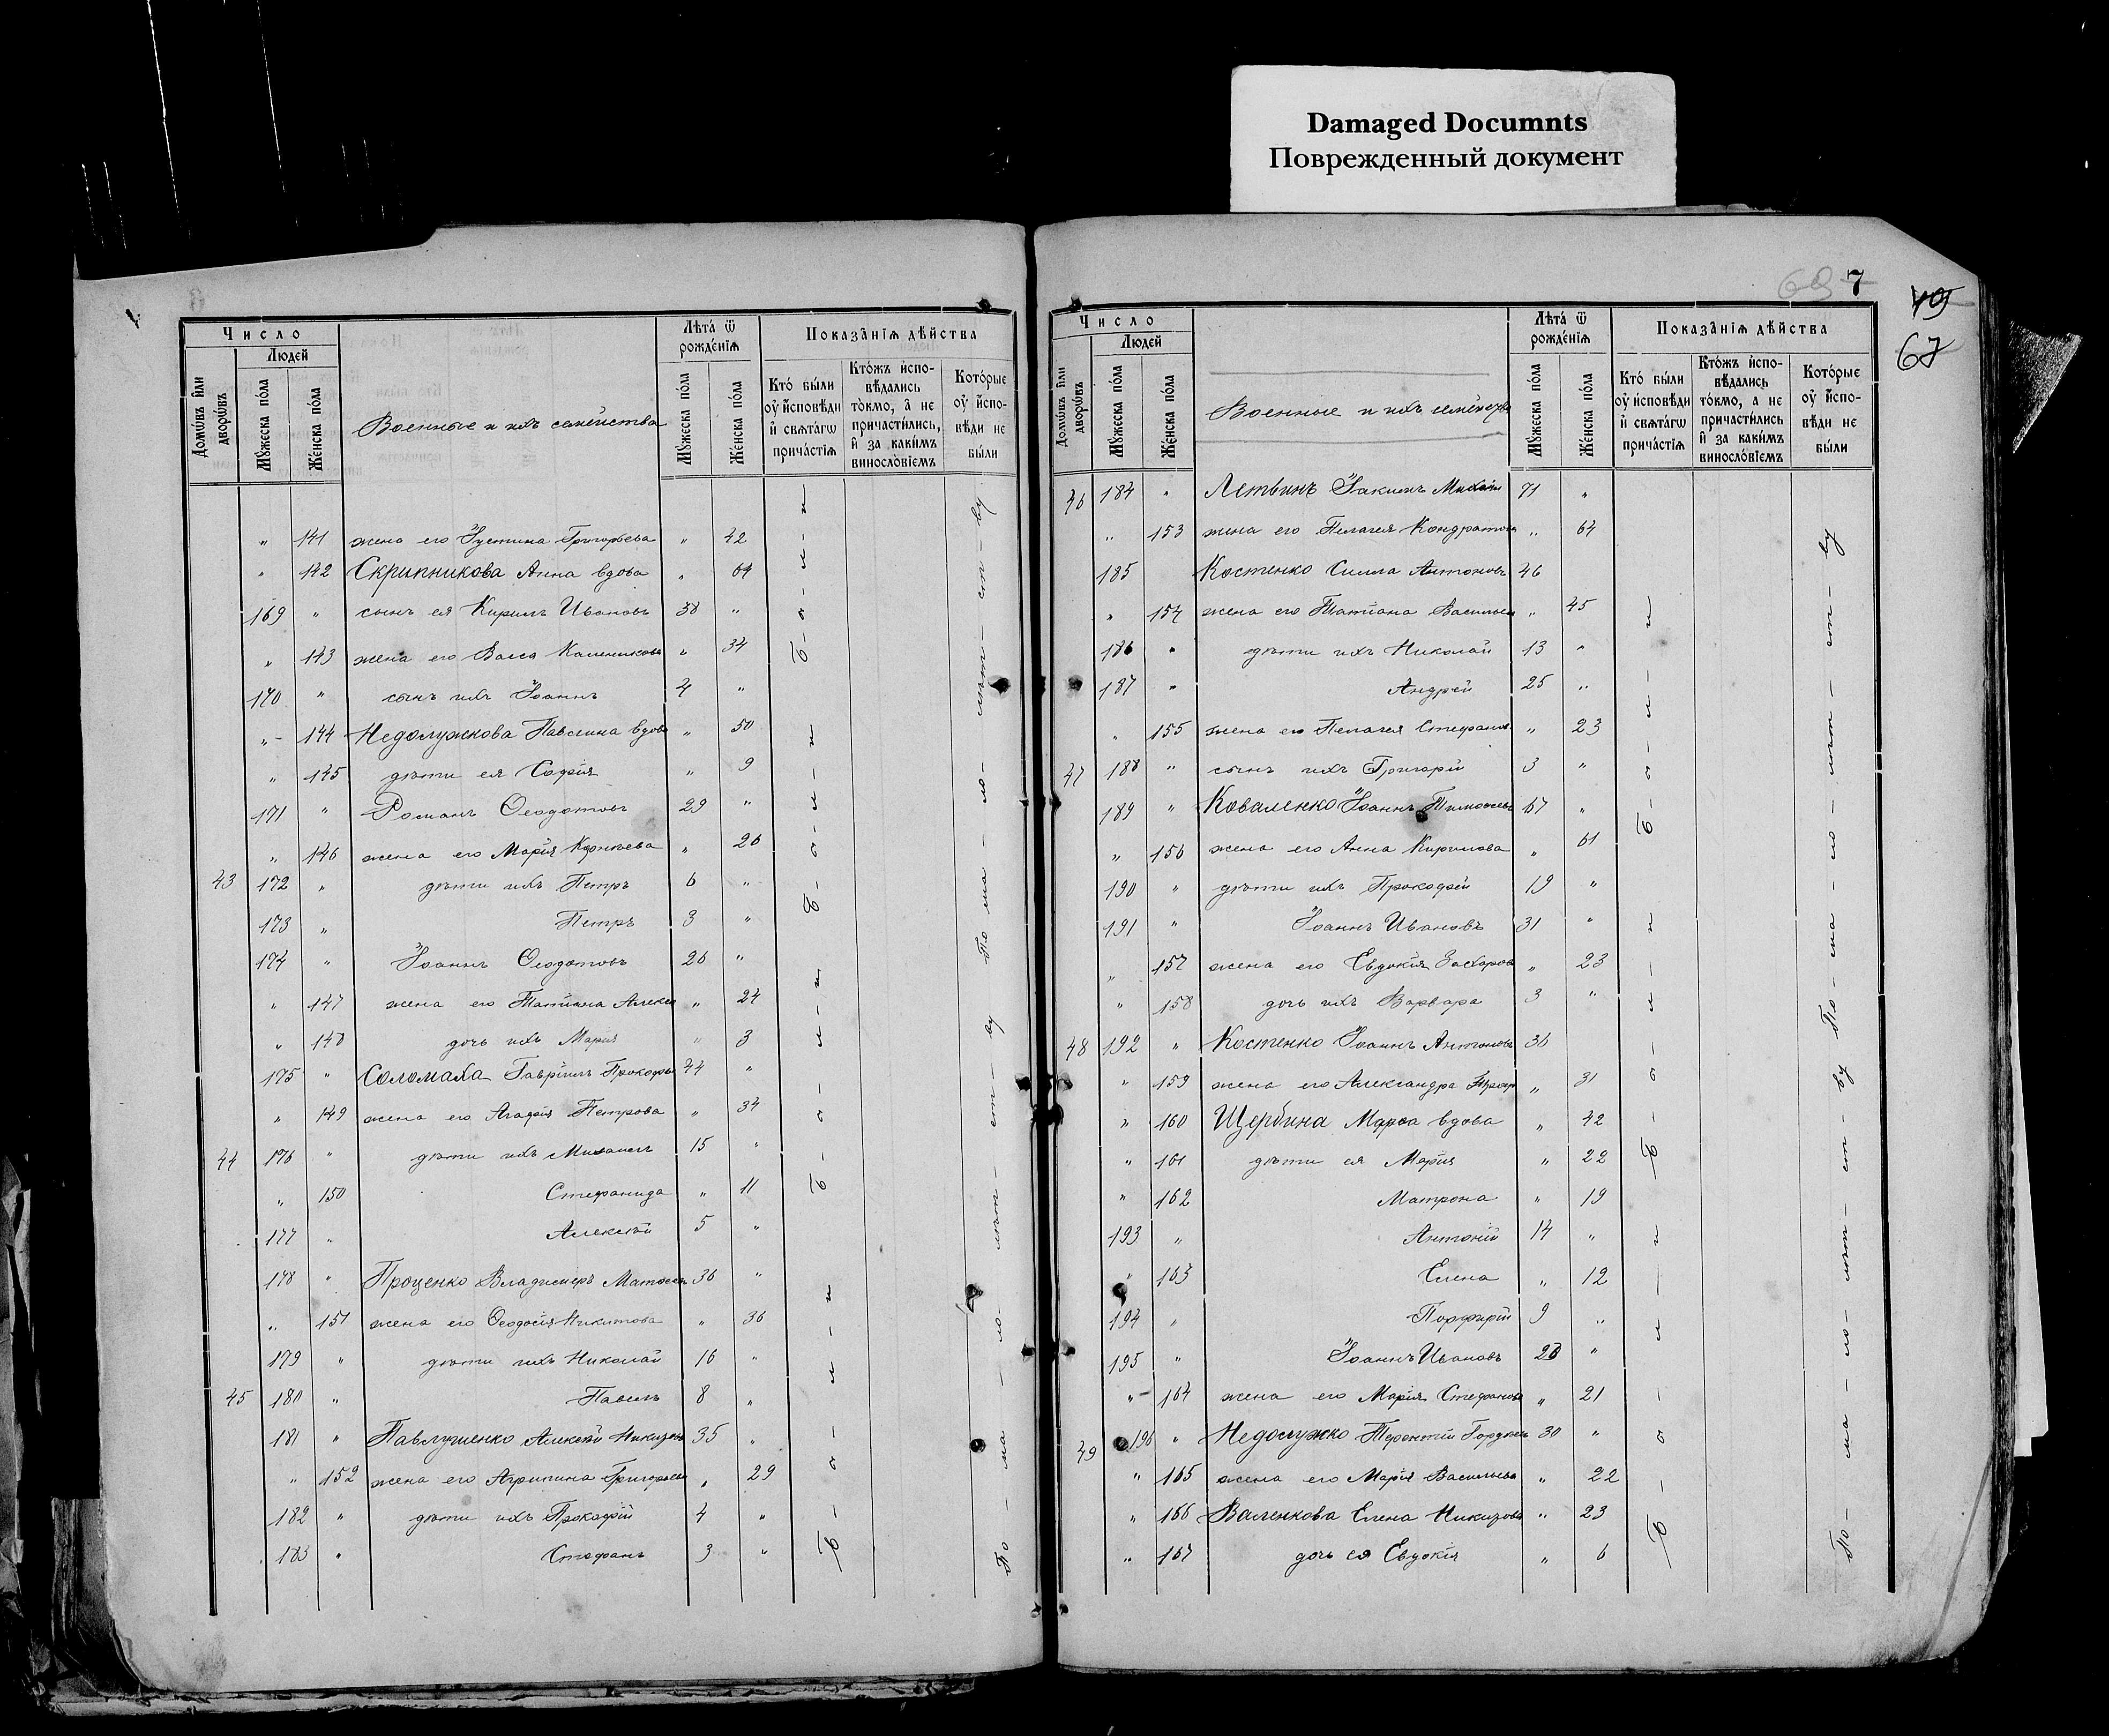 Damaged Documnts
Поврежденный документ
Число
Людей
Домѡвъ или дворѡвъ
Мꙋжеска пола
Женска пола
Военные и ихъ семейства
Лѣта ѿ рожденїѧ
Мꙋжеска пола
Женска пола
Показанїѧ дѣйства
Кто были оу исповѣди и свѧтагѡ причастїѧ
Ктожъ исповѣдались токмо, а не причастились, и за какимъ винословїемъ
Которые оу исповѣди не были
" 141 жена его Іустина Григорьева " 42
" 142 Скрипникова Анна вдова " 64
169 " сынъ ея Кирилъ Ивановъ 38 "
" 143 жена его Васса Калѣникова " 34
170 " сынъ ихъ Іоаннъ 4 "
" 144 Недолужкова Павлина вдова " 50
" 145 дѣти ея Софія " 9
171 " Романъ Ѳеодотовъ 29 "
" 146 жена его Марія " 26
43 172 " дѣти ихъ Петръ 6 "
173 " Петръ 3 "
174 " Іоаннъ Ѳеодотовъ 26 "
" 147 жена его Татіана Алекс " 24
" 148 дочь ихъ Марія " 3
175 " Соломаха Гавріилъ Прокофь 44 "
" 149 жена его Агафія Петрова " 34
44 176 " дѣти ихъ Михаилъ 15 "
" 150 Стефанида " 11
177 " Алексѣй 5 "
178 " Проценко Владимеръ Матѳеевъ 36 "
" 151 жена его Ѳеодосія Никитова " 36
179 " дѣти ихъ Николай 16 "
45 180 " Павелъ 8 "
181 " Павлученко Алексѣй 35 "
" 152 жена его Агрипина Григорьева " 29
182 " дѣти ихъ Прокофій 4 "
183 " Стефанъ 3 "
Б-ы-л-и
По ма-ло-лѣт-ст-ву
7
67
Число
Людей
Домѡвъ или дворѡвъ
Мꙋжеска пола
Женска пола
Военные и ихъ семейства
Лѣта ѿ рожденїѧ
Мꙋжеска пола
Женска пола
Показанїѧ дѣйства
Кто были оу исповѣди и свѧтагѡ причастїѧ
Ктожъ исповѣдались токмо, а не причастились и за какимъ винословїемъ
Которые оу исповѣди не были
46 184 " Летвинъ Іакимъ Михаил 71 "
" 153 жена его Пелагея Кондратова " 64
185 Костенко Силла Антоновъ 46
" 154 жена его Татіана Васильев " 45
186 " дѣти ихъ Николай 13 "
187 " Андрей 25 "
" 155 жена его Пелагея Стефанов " 23
47 188 " сынъ ихъ Григорій 3 "
189 " Коваленко Іоаннъ Тимоѳеевъ 67 "
" 156 жена его Анна Кирилова " 61
190 " дѣти ихъ Прокофій 19 "
191 " Іоаннъ Ивановъ 31 "
" 157 жена его Евдокія Захарова " 23
" 158 дочь ихъ Варвара 3 "
48 192 " Костенко Іоаннъ Антоновъ 36
" 159 жена его Александра " 31
" 160 Щербина Марѳа вдова " 42
" 161 дѣти ея Марія " 22
" 162 Матрона " 19
193 " Антоній 14 "
" 163 Елена " 12
194 " Порфирій 9 "
195 " Іоаннъ Ивановъ 23 "
" 164 жена его Марія Стефанова " 21
49 196 " Недолужко Терентій Гордѣевъ 30 "
" 165 жена его Марія Васильева " 22
" 166 Валенкова Елена " 23
" 167 дочь ея Евдокія " 6
Б-ы-л-и
По-ма-ло-лѣт-ст-ву